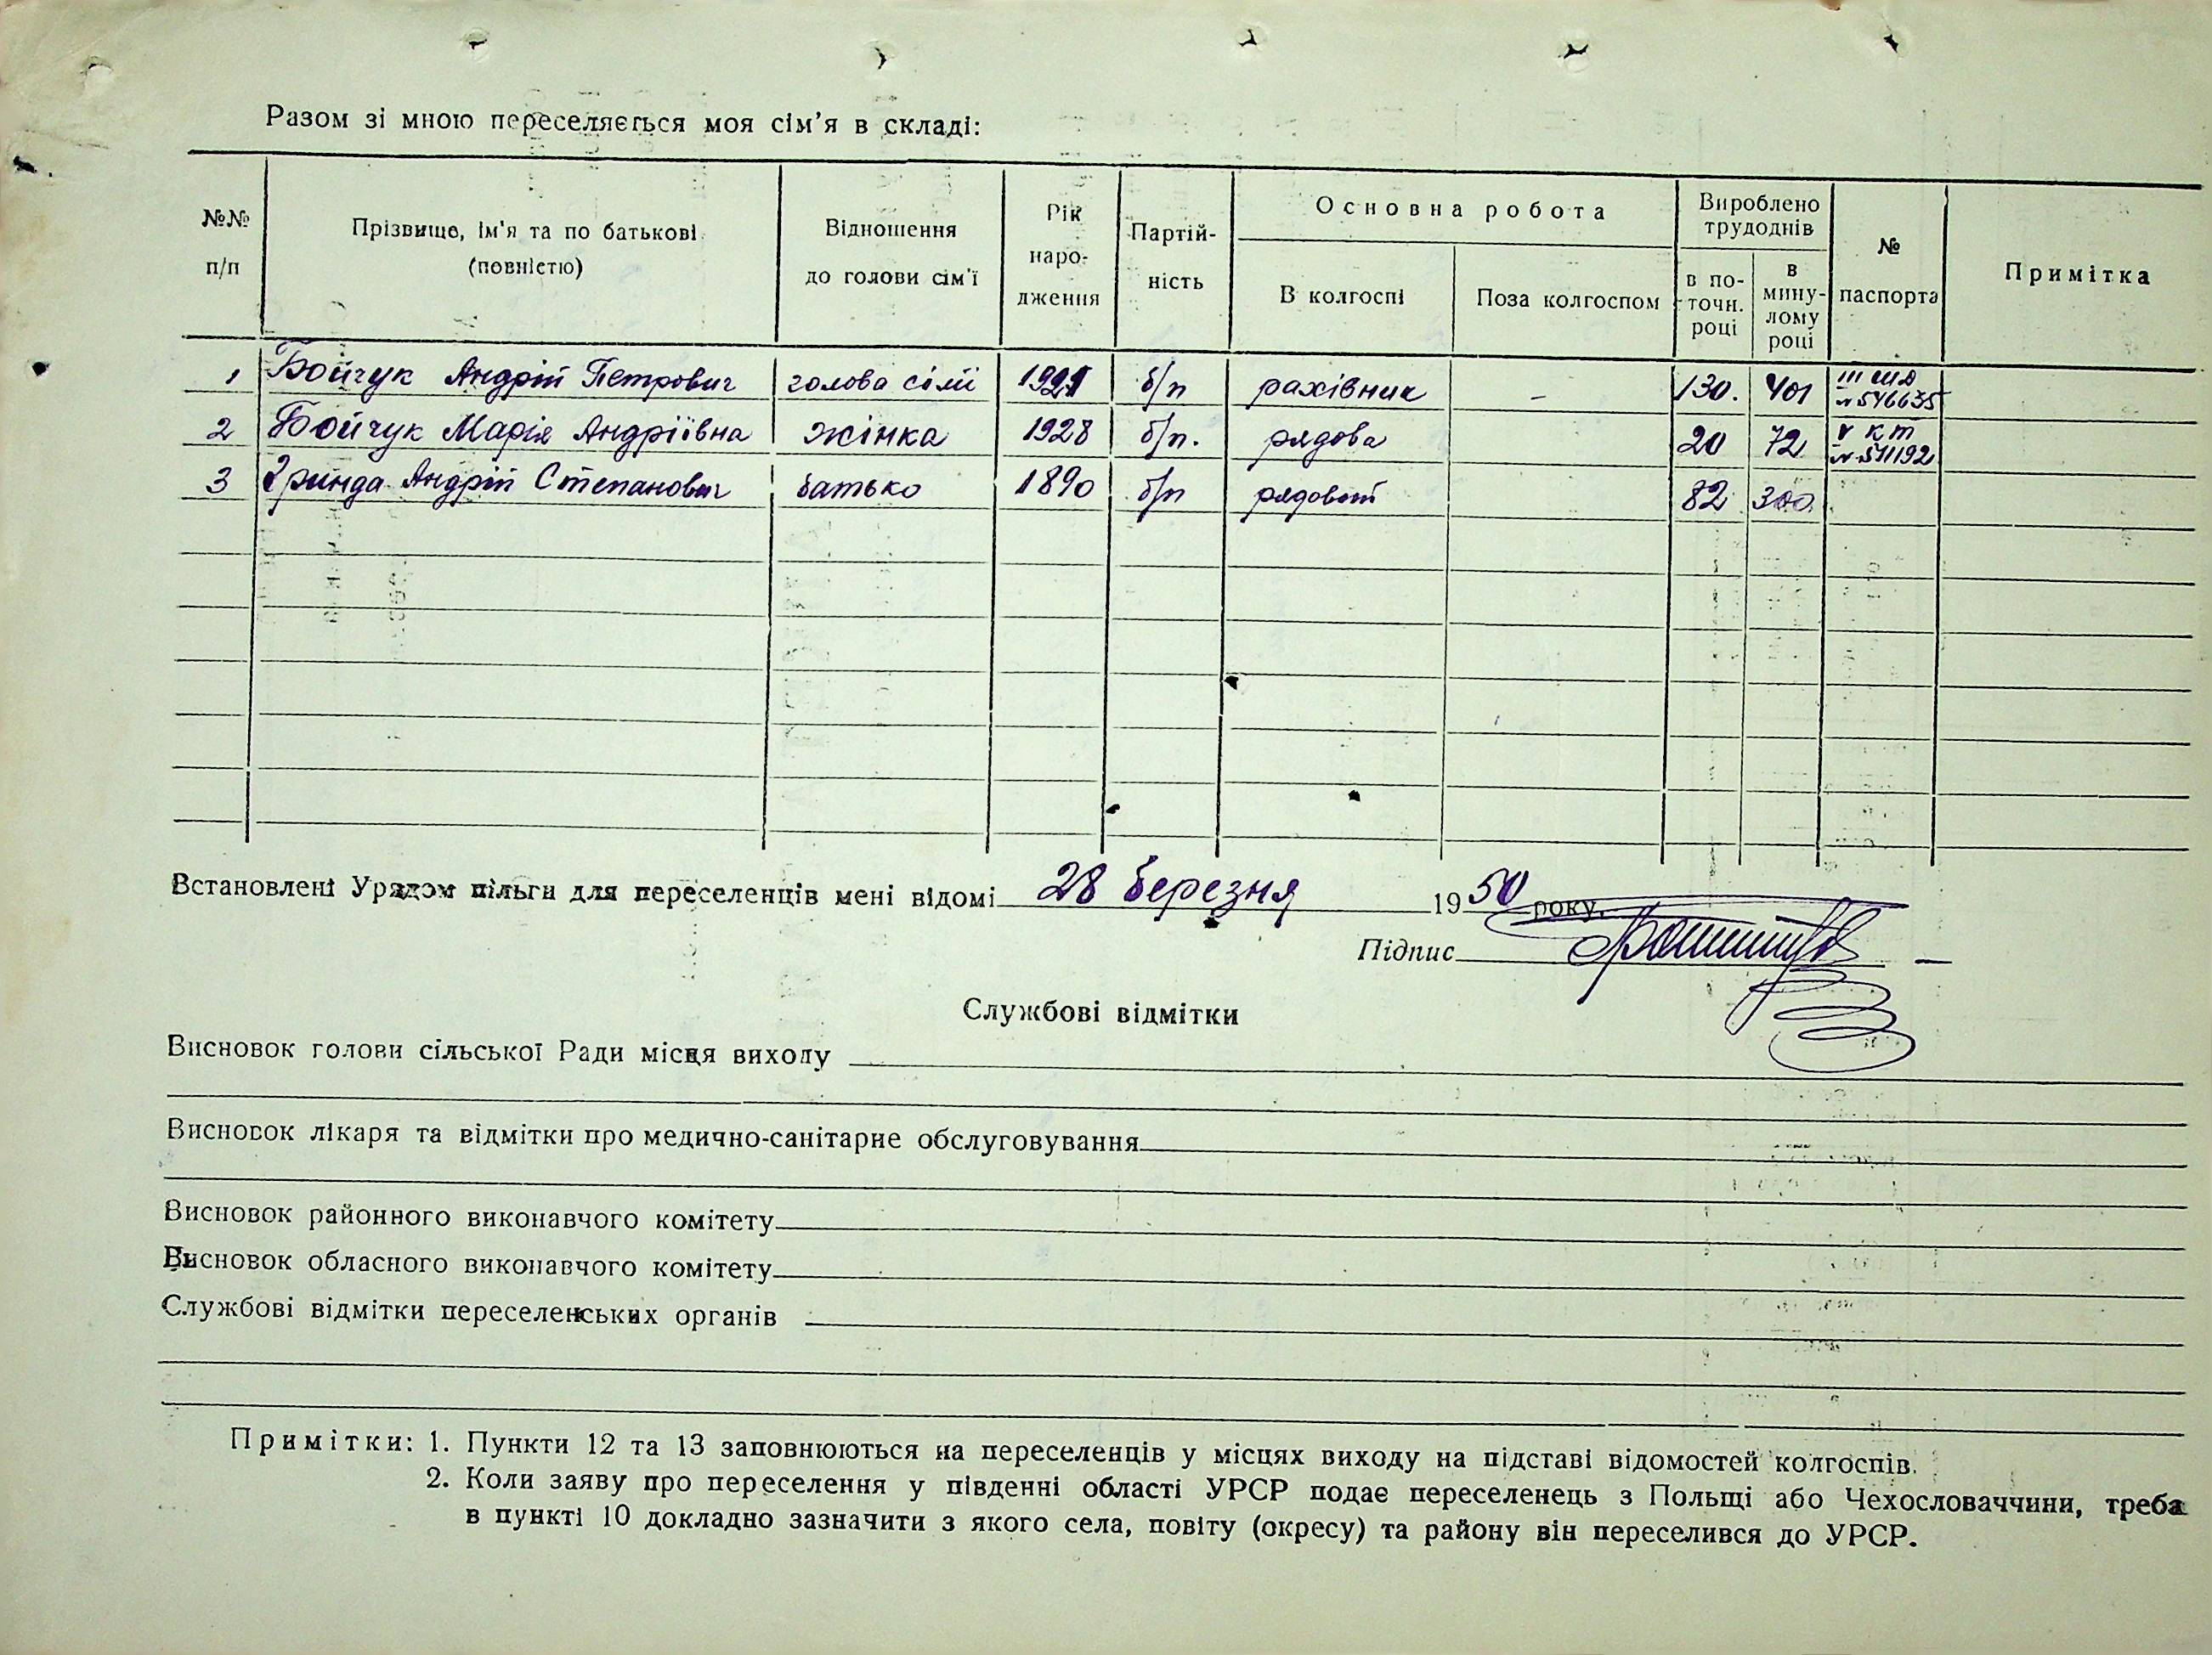 Разом зі мною переселяється моя сім'я в складі:
№№ п/п
Прізвище, ім'я та по батькові (повністю)
Відношення до голови сім'ї
Рік народження
Партійність
Основна робота
В колгоспі
Поза колгоспом
Вироблено трудоднів
в поточн. році
в минулому році
№ паспорта
Примітка
1 Бойчук Андрій Петрович голова сімї б/п рахівник – 130. 401 III ШД № 546635
2 Бойчук Марія Андріївна жінка 1928 б/п. рядова 20 72 V КТ № 541192
3 Гринда Андрій Степанович батько 1890 б/п рядовий 82 300
Встановлені Урядом пільги для переселенців мені відомі 28 березня 1950 року.
Підпис
Службові відмітки
Висновок голови сільської Ради місця виходу
Висновок лікаря та відмітки про медично-санітарне обслуговування
Висновок районного виконавчого комітету
Висновок обласного виконавчого комітету
Службові відмітки переселенських органів
Примітки: 1. Пункти 12 та 13 заповнюються на переселенців у місцях виходу на підставі відомостей колгоспів.
2. Коли заяву про переселення у південні області УРСР подає переселенець з Польщі або Чехословаччини, треба
в пункті 10 докладно зазначити з якого села, повіту (окресу) та району він переселився до УРСР.